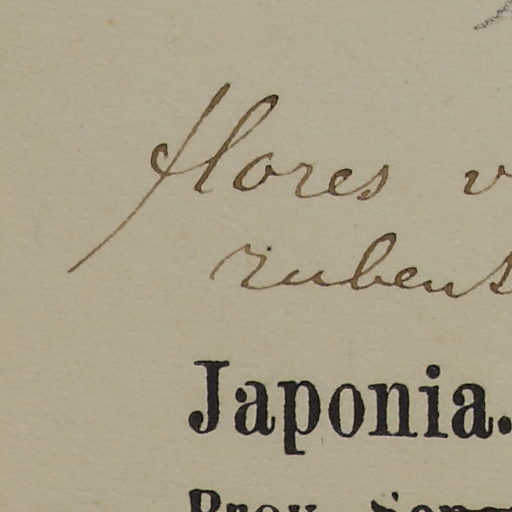 flores
rubens
Japonia.
Prov.